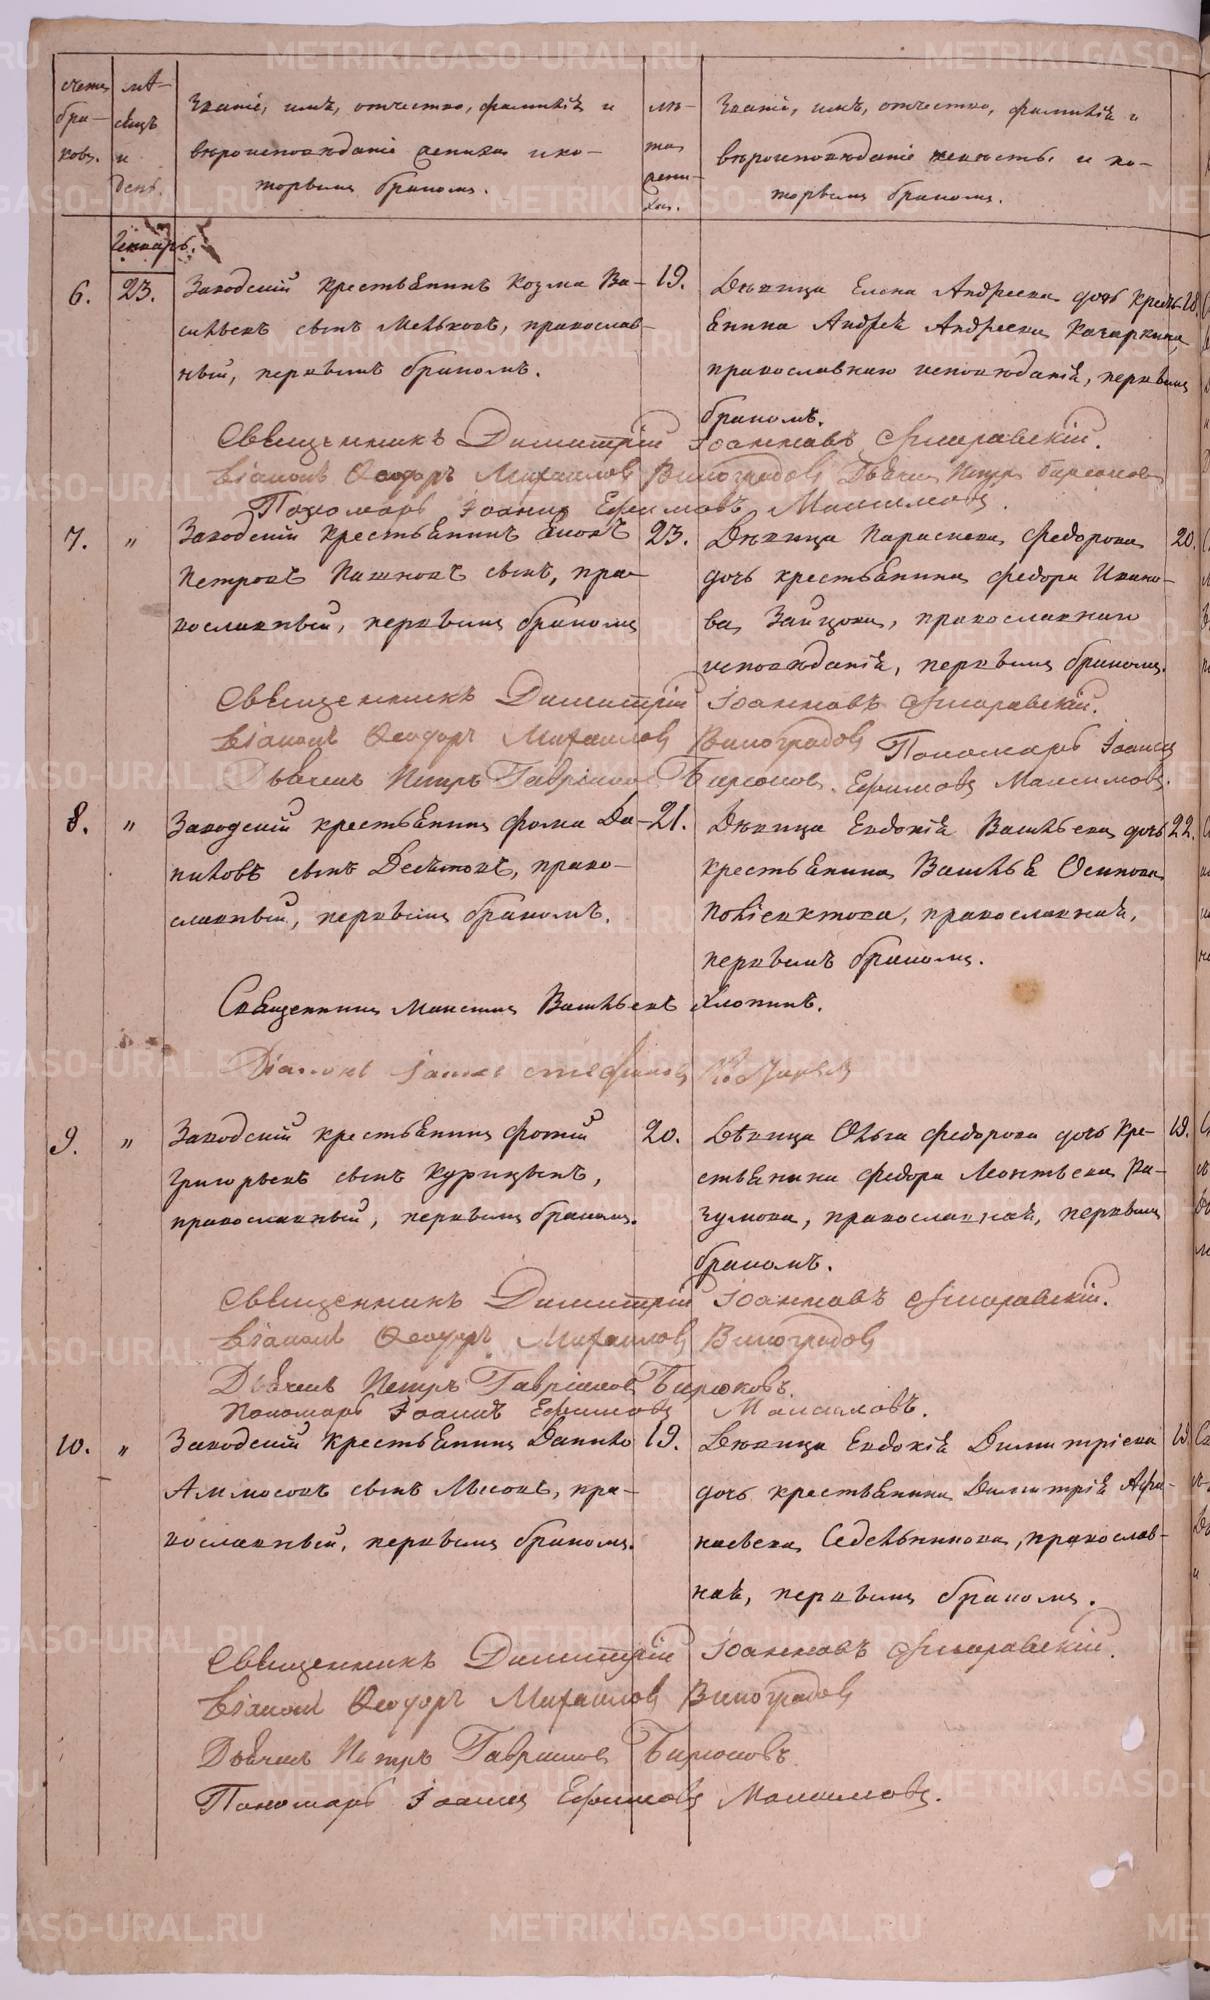 METRIKI.GASO-URAL.RU
счетъ браковъ.
мѣсяцъ и день.
Званіе, имя, отчество, фамилія и вѣроисповѣданіе жениха и которымъ бракомъ.
лѣта жениха.
Званіе, имя, отчество, фамилія и вѣроисповѣданіе невѣсты и которымъ бракомъ.
Генварь.
6.
23.
Заводскій крестьянинъ Козма Ва-
сильевъ сынъ Мельковъ, православ-
ный, первымъ бракомъ.
19.
Дѣвица Елена Андреева дочь кресть-
янина Андрея Андреева Качаркина,
православнаго исповѣданія, первымъ
бракомъ.
18.
Священникъ Димитрій Іоанновъ
Діаконъ Ѳеодоръ Михаиловъ Виноградовъ Дьячекъ Петръ Бирюковъ
Пономарь Іоаннъ Ефимовъ Максимовъ.
7.
"
Заводскій крестьянинъ
Петровъ Пашковъ сынъ, пра-
вославный, первымъ бракомъ
23.
Дѣвица Параскева Федорова
дочь крестьянина Федора Ивано-
ва Зайцова, православнаго
исповѣданія, первымъ бракомъ.
20.
Священникъ Димитрій Іоанновъ
Діаконъ Ѳеодоръ Михаиловъ Виноградовъ Пономарь Іоаннъ
Дьячекъ Петръ Гавриловъ Бирюковъ. Ефимовъ Максимовъ.
8.
"
Заводскій крестьянинъ Фома Да-
ниловъ сынъ Десятовъ, право-
славный, первымъ бракомъ.
21.
Дѣвица Евдокія Васильева дочь
крестьянина Василья Осипова
Поліевктова, православная,
первымъ бракомъ.
22.
Священникъ Максимъ Васильевъ Хлопинъ.
Діаконъ Іаковъ Стефановъ
9.
"
Заводскій крестьянинъ Фотій
Григорьевъ сынъ Курицынъ,
православный, первымъ бракомъ.
20.
Дѣвица Ольга Федорова дочь кре-
стьянина Федора Леонтьева Ра-
зумова, православная, первымъ
бракомъ.
19.
Священникъ Димитрій Іоанновъ
Діаконъ Ѳеодоръ Михаиловъ Виноградовъ
Дьячекъ Петръ Гавриловъ Бирюковъ.
Пономарь Іоаннъ Ефимовъ Максимовъ.
10.
"
Заводскій крестьянинъ Данило
Аммосовъ сынъ Лысовъ, пра-
вославный, первымъ бракомъ.
19.
Дѣвица Евдокія Димитріева
дочь крестьянина Димитрія Афа-
насьева Седельникова, православ-
ная, первымъ бракомъ.
Священникъ Димитрій Іоанновъ
Діаконъ Ѳеодоръ Михаиловъ Виноградовъ
Дьячекъ Петръ Гавриловъ Бирюковъ
Пономарь Іоаннъ Ефимовъ Максимовъ.